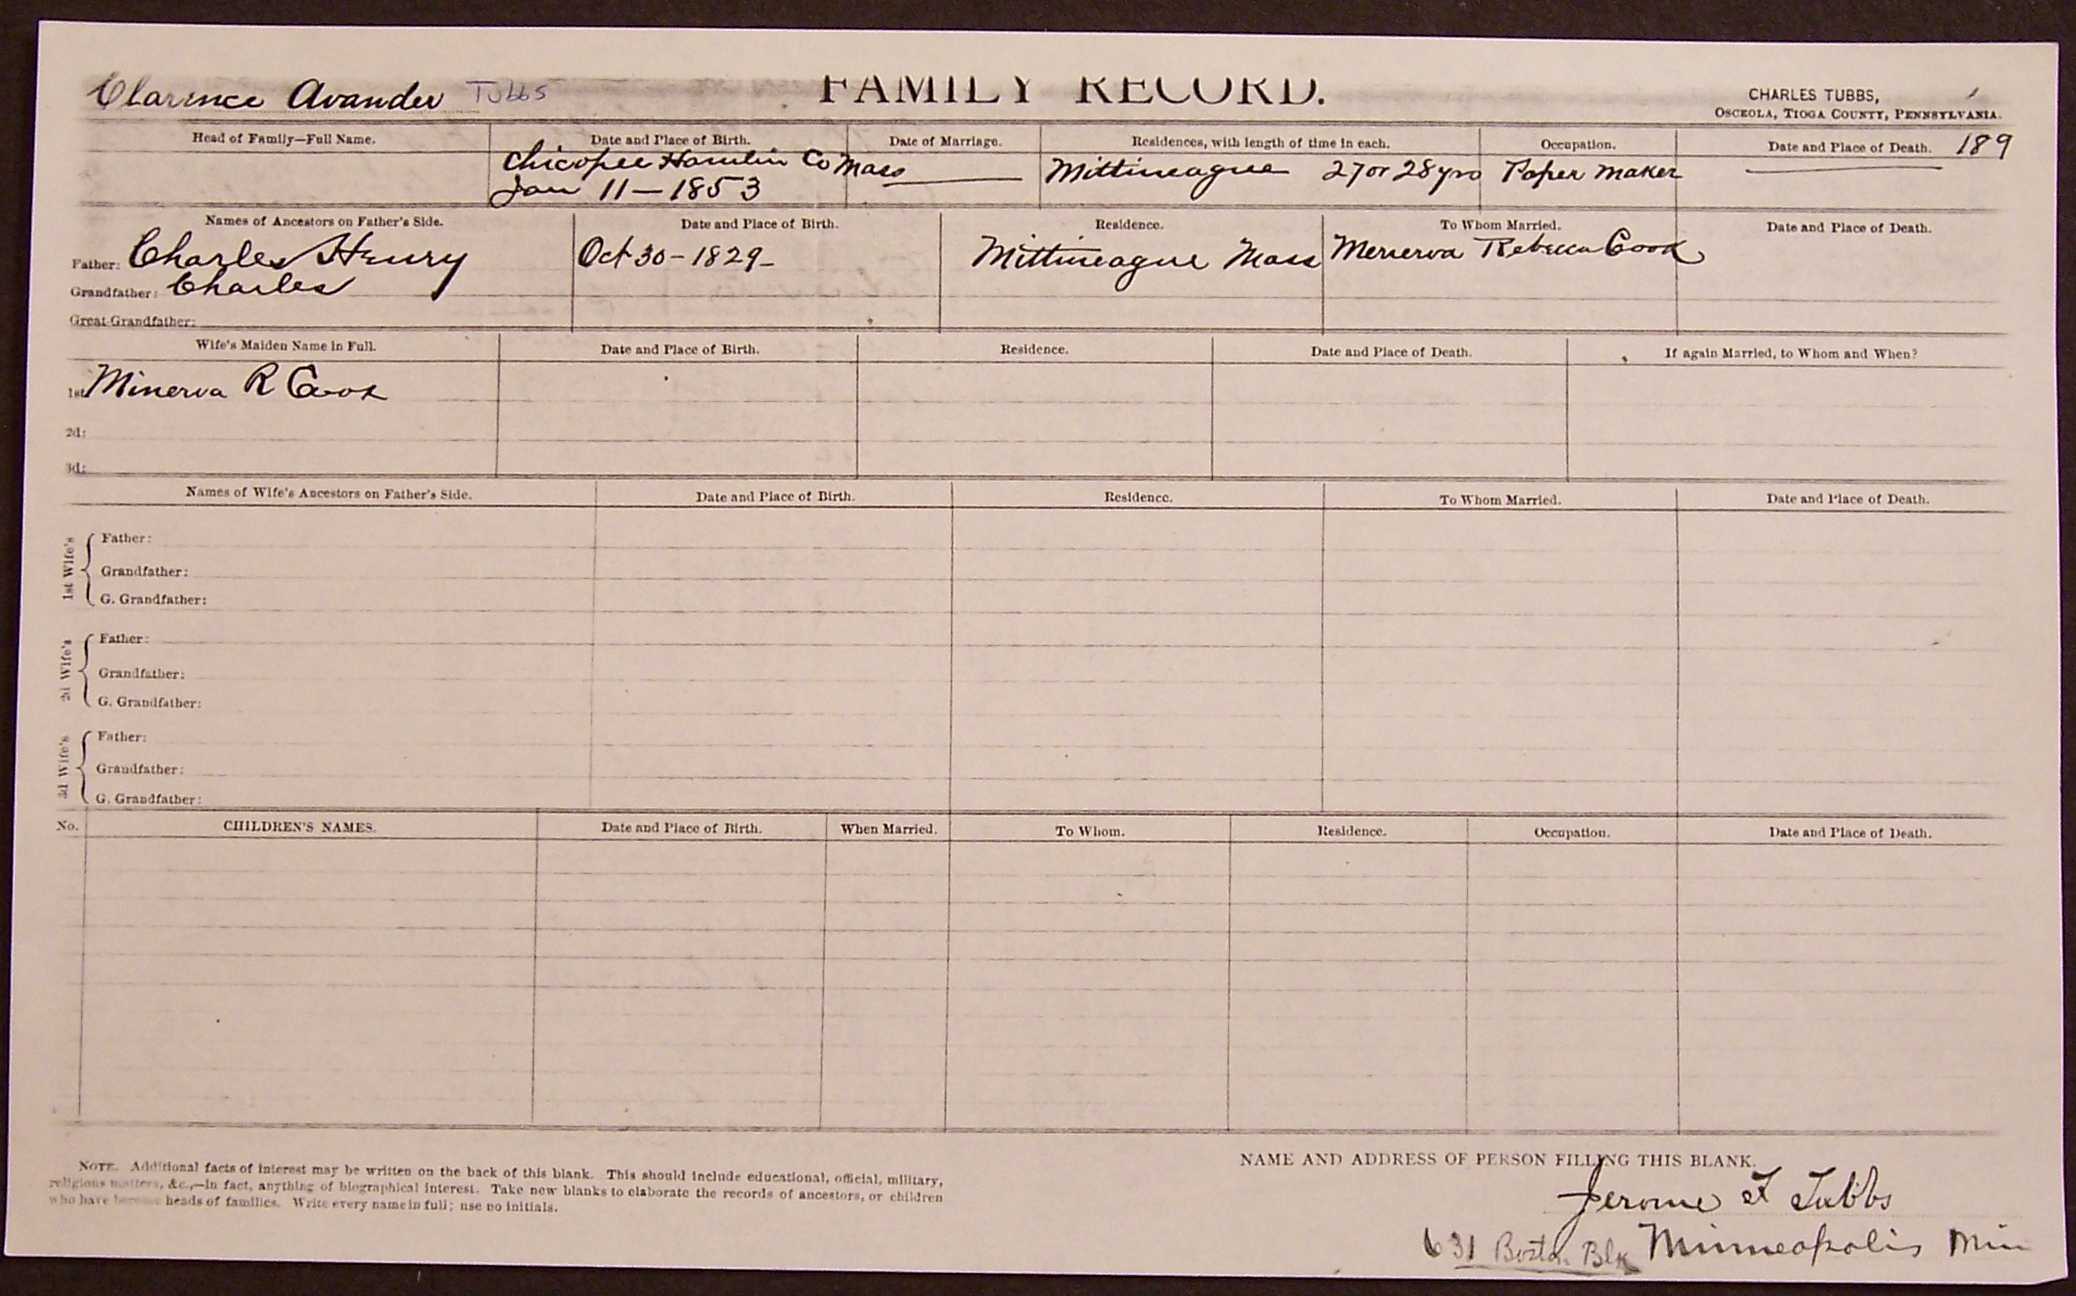 Clarence Avander Tubbs
FAMILY RECORD.
CHARLES TUBBS,
OSCEOLA, TIOGA COUNTY, PENNSYLVANIA.
189
Head of Family—Full Name. Date and Place of Birth. Date of Marriage. Residences, with length of time in each. Occupation. Date and Place of Death.
Chicopee Hamlin Co Mass Mittineague 27 or 28 yrs Paper Maker
Jan 11—1853
Names of Ancestors on Father's Side. Date and Place of Birth. Residence. To Whom Married. Date and Place of Death.
Father: Charles Henry Oct 30-1829- Mittineague Mass Menerva Rebecca Cook
Grandfather: Charles
Great-Grandfather:
Wife's Maiden Name in Full. Date and Place of Birth. Residence. Date and Place of Death. If again Married, to Whom and When?
1st Minerva R Cook
2d:
3d:
Names of Wife's Ancestors on Father's Side. Date and Place of Birth. Residence. To Whom Married. Date and Place of Death.
1st Wife's
Father:
Grandfather:
G. Grandfather:
2d Wife's
Father:
Grandfather:
G. Grandfather:
3d Wife's
Father:
Grandfather:
G. Grandfather:
No. CHILDREN'S NAMES. Date and Place of Birth. When Married. To Whom. Residence. Occupation. Date and Place of Death.
NOTE. Additional facts of interest may be written on the back of this blank. This should include educational, official, military,
religious matters, &c.,—in fact, anything of biographical interest. Take new blanks to elaborate the records of ancestors, or children
who have become heads of families. Write every name in full; use no initials.
NAME AND ADDRESS OF PERSON FILLING THIS BLANK.
Jerome F Tubbs
631 Boston Blk Minneapolis Min